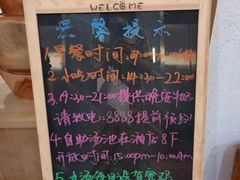 WELCOME
温馨提示
1.早餐时间:07:00-
2.小吃时间:14:30-22:00
3.19:30-21:00提供晚安牛奶
请致电:8888提前预约
4.自助汤池在酒店8F
开放时间:15:00pm-10:00Am
5.